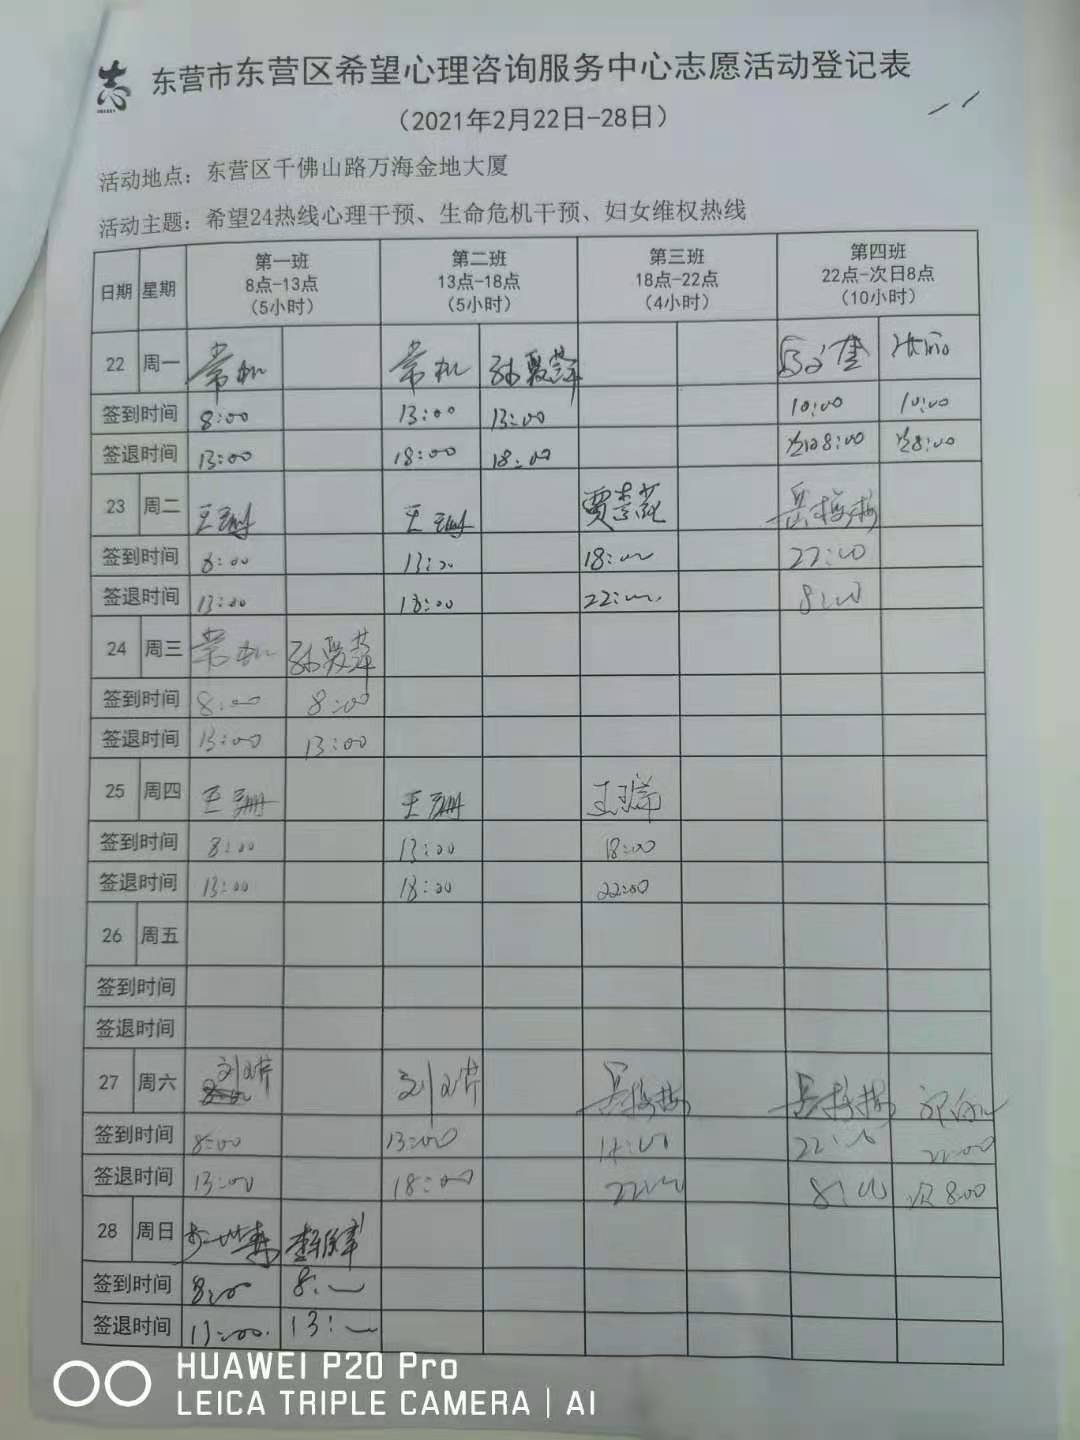 志
东营市东营区希望心理咨询服务中心志愿活动登记表
（2021年2月22日-28日）
活动地点：东营区千佛山路万海金地大厦
活动主题：希望24热线心理干预、生命危机干预、妇女维权热线
日期 星期 第一班 8点-13点 （5小时） 第二班 13点-18点 （5小时） 第三班 18点-22点 （4小时） 第四班 22点-次日8点 （10小时）
22 周一
签到时间 8:00 13:00 13:00 10:00 10:00
签退时间 13:00 18:00 18:00 次日8:00 次8:00
23 周二
签到时间 8:00 13:00 18:00 22:00
签退时间 13:00 18:00 22:00 8:00
24 周三
签到时间 8:00 8:00
签退时间 13:00 13:00
25 周四
签到时间 8:00 13:00 18:00
签退时间 13:00 18:00 22:00
26 周五
签到时间
签退时间
27 周六
签到时间 8:00 13:00 22:00 22:00
签退时间 13:00 18:00 22:00 8:00 次8:00
28 周日
签到时间 8:00 8:
签退时间 13:00 13:
HUAWEI P20 Pro
LEICA TRIPLE CAMERA | AI